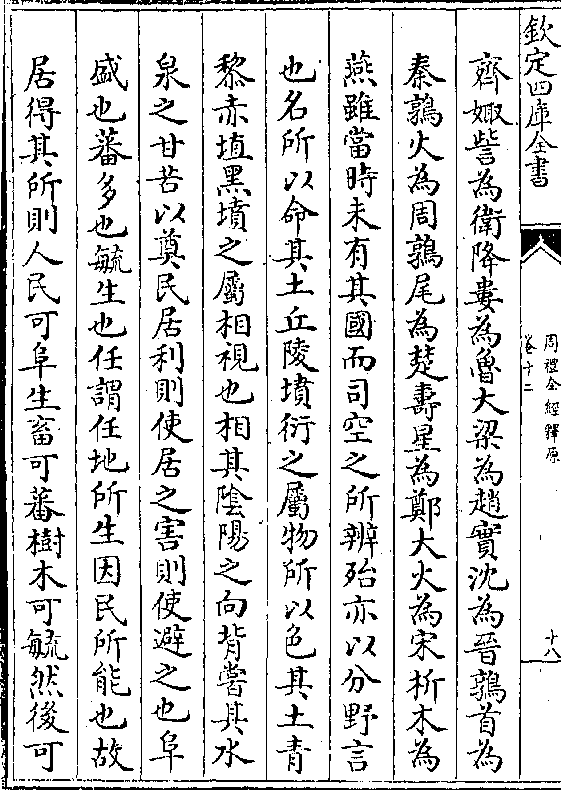 欽定四庫全書
周禮全經釋原
卷十二
十八
齊娵訾為衛降婁為魯大梁為趙實沈為晉鶉首為
秦鶉火為周鶉尾為楚壽星為鄭大火為宋析木為
燕雖當時未有其國而司空之所辨殆亦以分野言
也名所以命其土丘陵墳衍之屬物所以色其土青
黎赤埴黑墳之屬相視也相其陰陽之向背嘗其水
泉之甘苦以奠民居利則使居之害則使避之也阜
盛也蕃多也毓生也任謂任地所生因民所能也故
居得其所則人民可阜生畜可蕃樹木可毓然後可